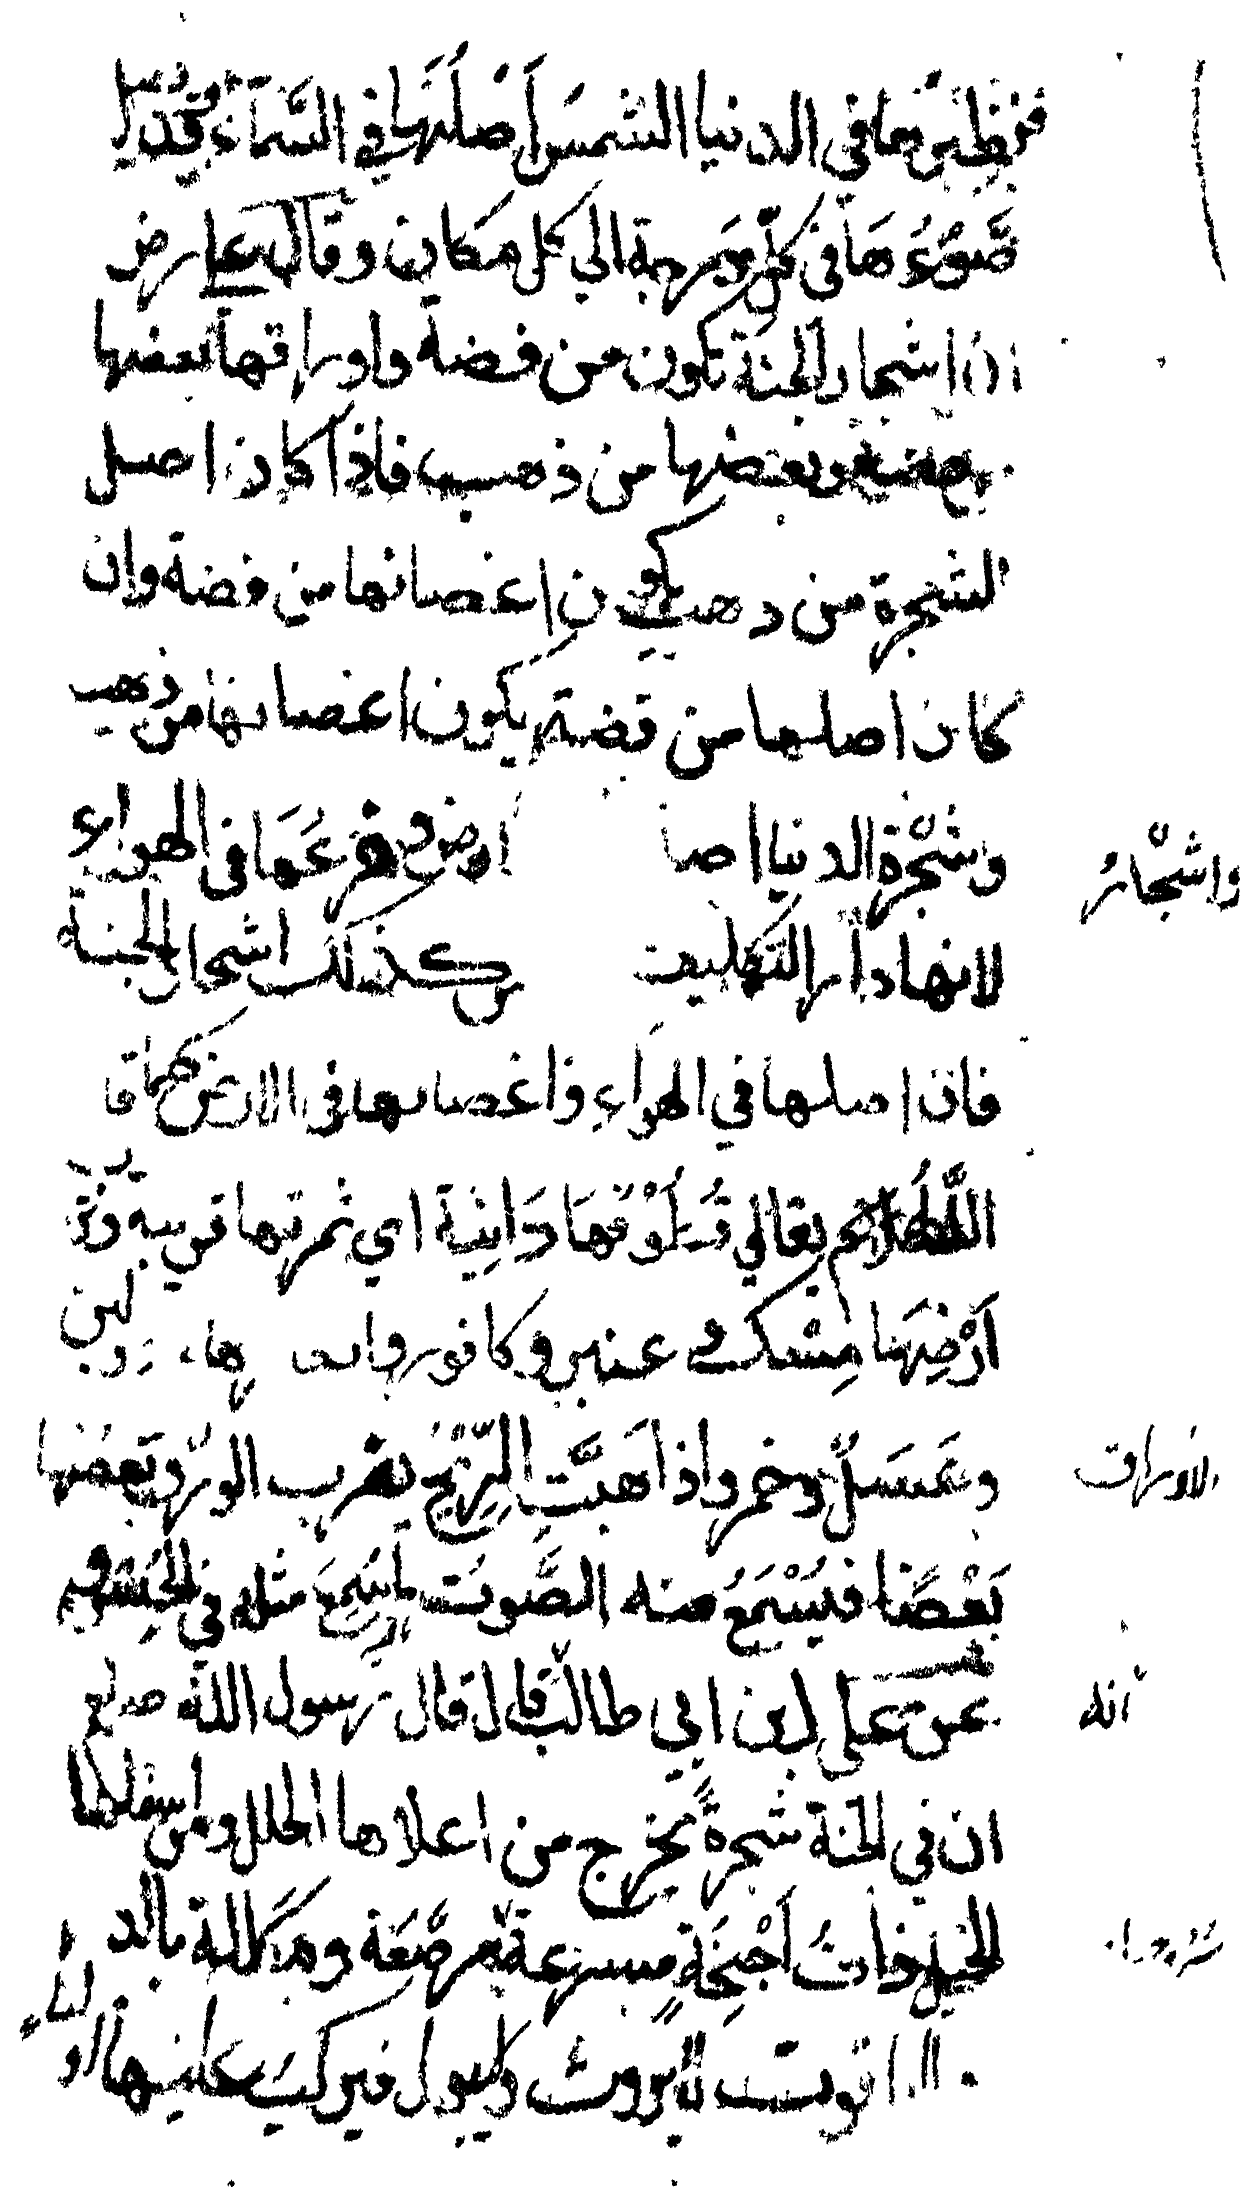 فنظيرها في الدنيا الشمس أصلها في السماء وقد
ضوءها في كل موجة الي كل مكان وقال علي رض
ان اشجار الجنة تكون من فضة واوراقها بعضها
فضة وبعضها من ذهب فاذا كان اصل
الشجرة من ذهب يكون اغصانها من فضة وان
كان اصلها من فضة يكون اغصانها من ذهب
وشجرة الدنيا اصلها ارض وفرعها في الهواء
واشجار
لانها دار التكليف كذلك اشجار الجنة
فان اصلها في الهواء واغصانها في الارض كما قا
الله تعالي قطوفها دانية اي ثمرتها قريبة
أرضها مسك وعنبر وكافور ولبن
وعسل وخمر واذا هبت الريح يضرب الورق بعضها
الاوراق
بعضا فيسمع منه الصوت ما يسمع مثله في الحسن
عن علي ابن ابي طالب قال قال رسول الله صلعم
انه
ان في الجنة شجرة يخرج من اعلاها الحلل ومن اسفلها
الخيل ذات أجنحة مسرجة مرصعة ومكللة بالد
اقوت لا يروث ولا يبول فيركب عليها او